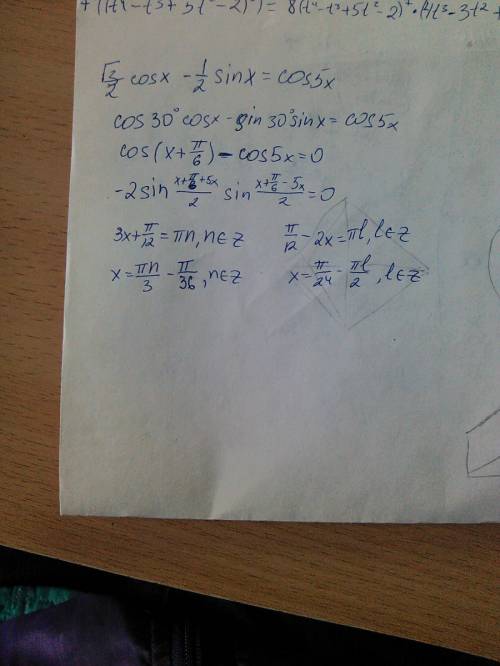 + ((t⁴-t³+5t²-2)⁸)' = 8(t⁴-t³+5t²-2)⁷·(4t³-3t²+
√3/2 cosx - 1/2 sinx = cos5x
cos30° cosx - sin30° sinx = cos5x
cos(x+π/6) - cos5x = 0
-2sin (x+π/6+5x)/2 sin (x+π/6-5x)/2 = 0
3x+π/12 = πn, n∈z π/12 - 2x = πl, l∈z
x = πn/3 - π/36, n∈z x = π/24 - πl/2, l∈z